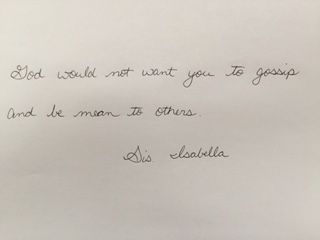 God would not want you to gossip
and be mean to others.
Sis. Isabella